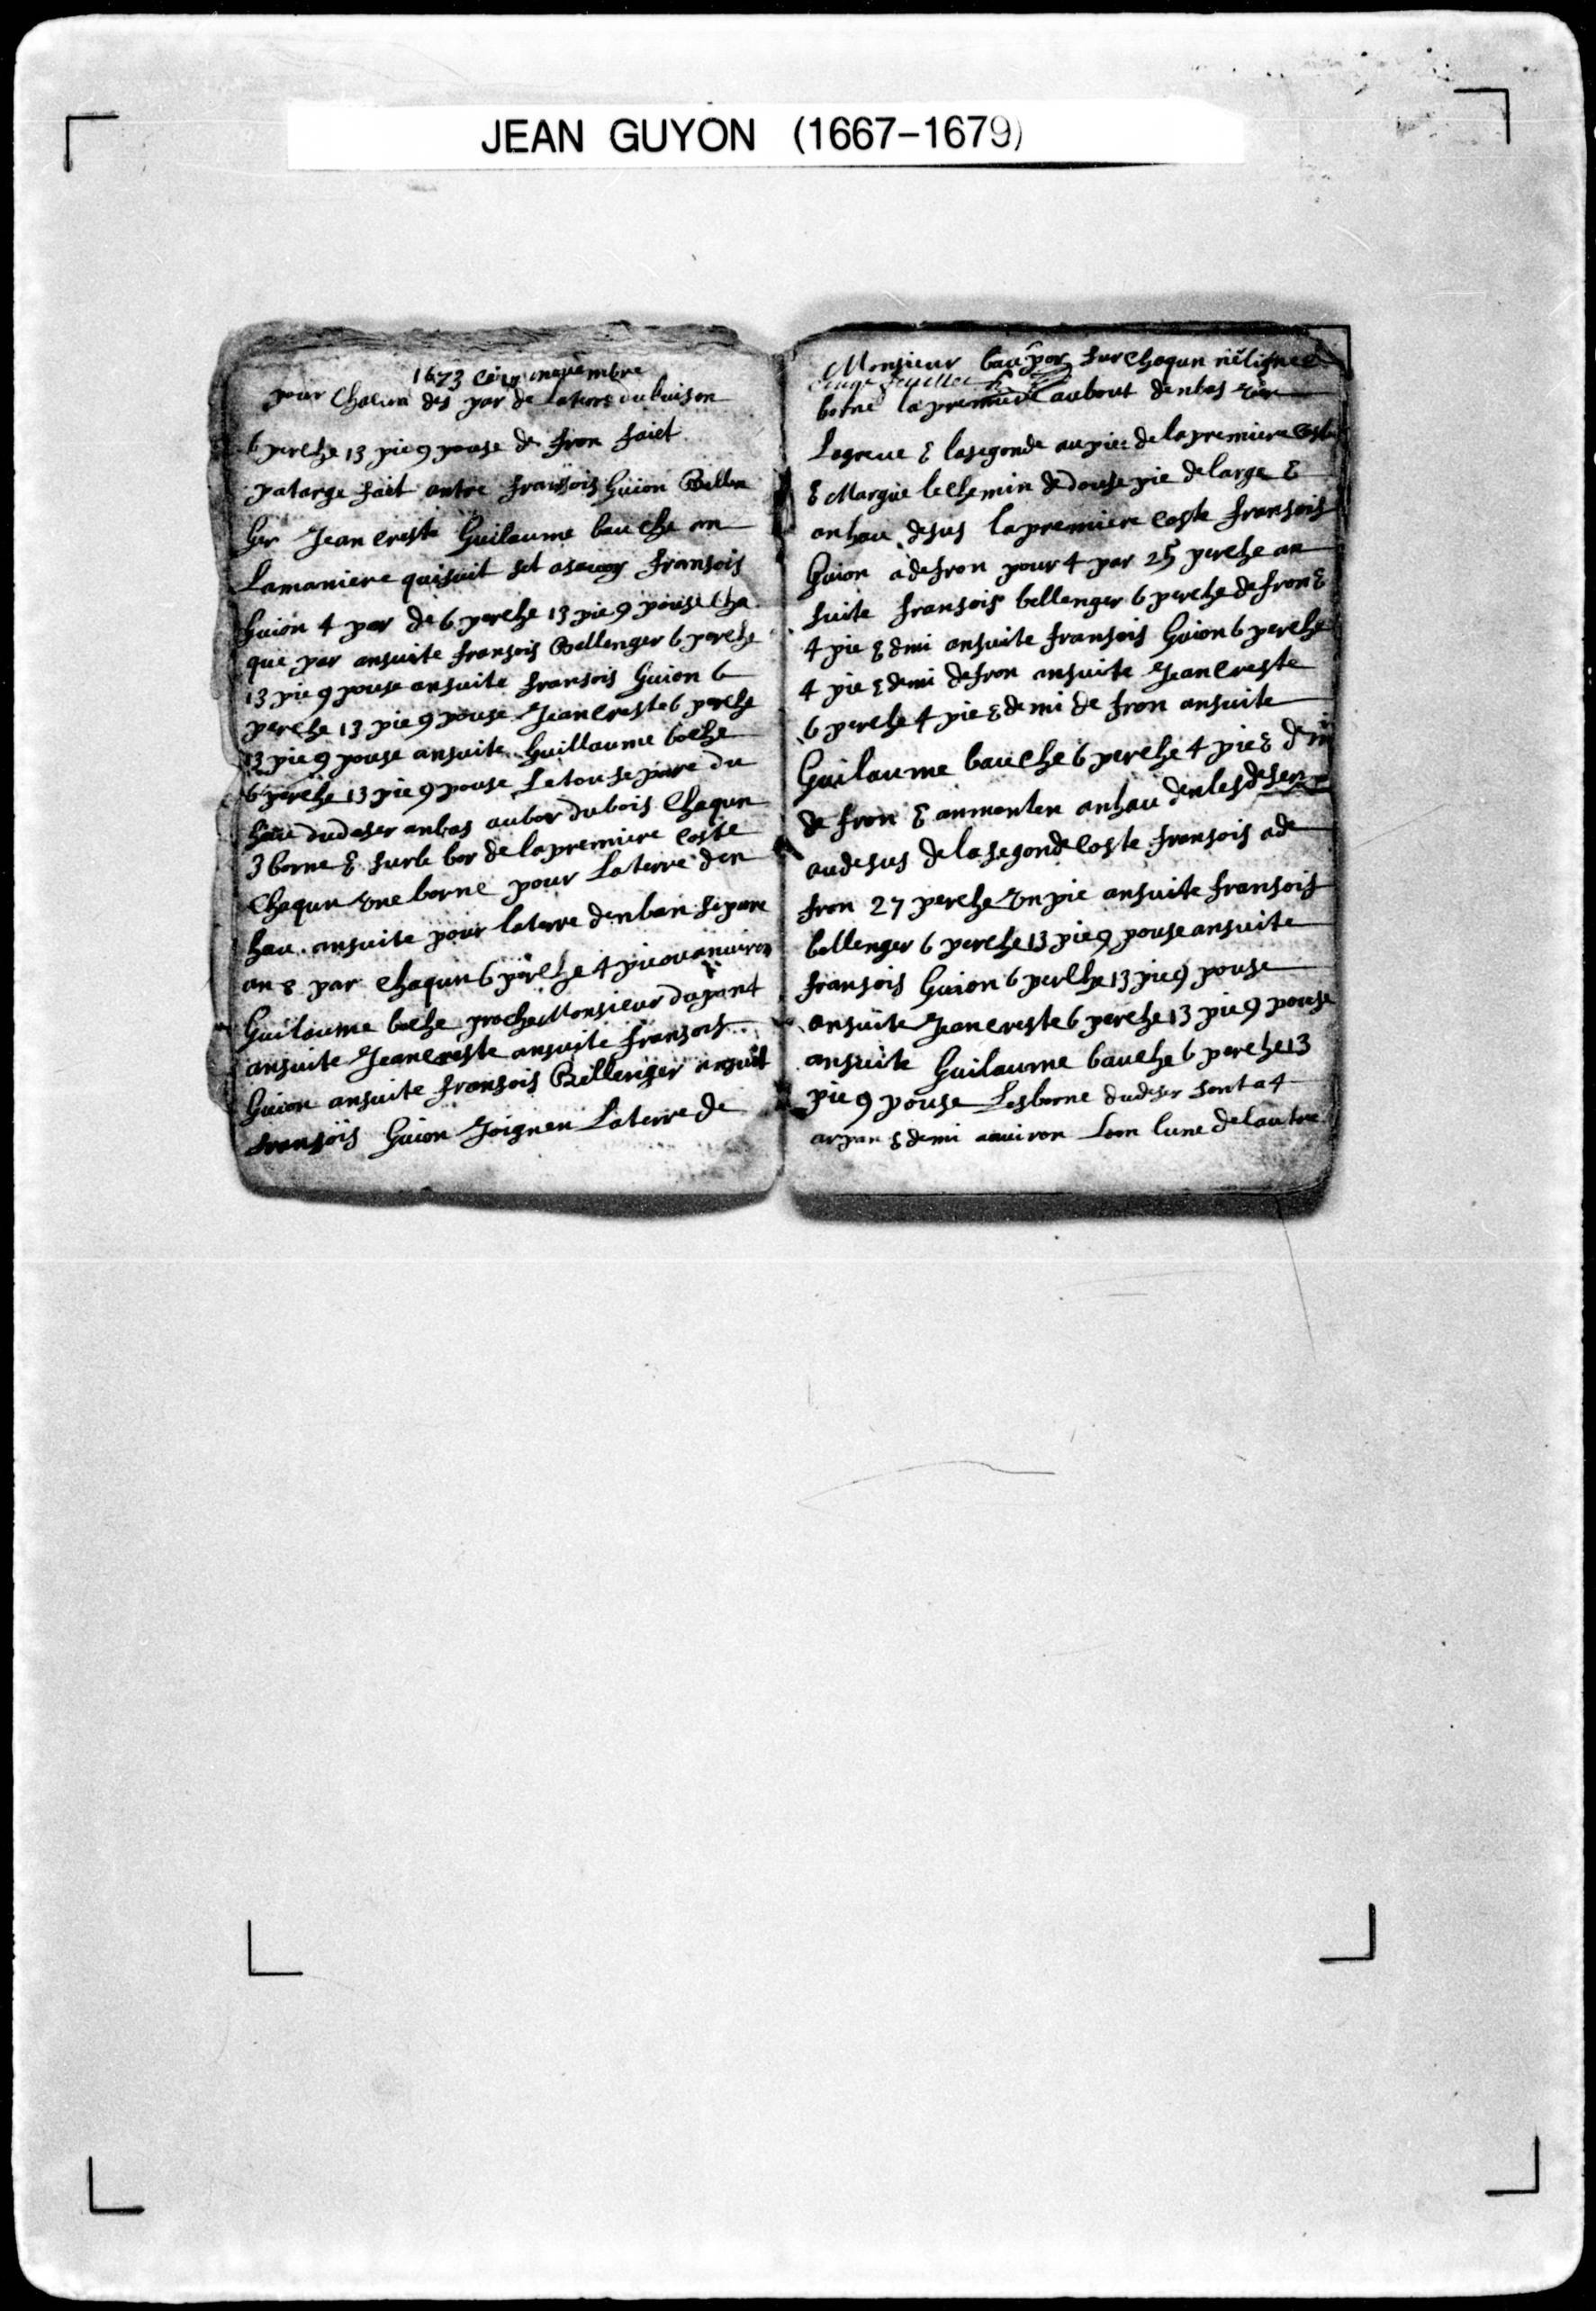 JEAN GUYON (1667-1679)
1673 ce 14 novembre
pour Chacun des par de Laterre du buison
6 perche 13 pie 9 pouse de fron faict
patarge fait antre fransois Guion Bellen
Ger Jean Creste Guilaume bauche an
Lamaniere qui suit set asavoy fransois
Guion 4 par de 6 perche 13 pie 9 pouse Cha
que par ansuite fransois Bellenger 6 perche
13 pie 9 pouse ansuite fransois Guion 6
perche 13 pie 9 pouse Jean Creste 6 perche
13 pie 9 pouse ansuite Guillaume boche
6 perche 13 pie 9 pouse Letou se pare du
hau dudeser anbas aubor dubois Chaqun
3 borne & surle bor de la premiere coste
Chaqun une borne pour Laterre den
hau ansuite pour laterre denbas se pare
an 8 par Chaqun 6 perche 4 pie ou anviron
Guilaume boche proche Monsieur dupont
ansuite Jean Creste ansuite fransois
Guion ansuite fransois Bellenger ansuit
fransois Guion Joignen Laterre de
Monsieur baupor sur Chaqun
borne la premiere aubout denbas ver
Lagreve & lasegonde au pie de la premiere coste
& Margue le Chemin de douse pie de large &
anhau desus la premiere coste fransois
Guion a de fron pour 4 par 25 perche an
suite fransois bellenger 6 perche de fron &
4 pie & demi ansuite fransois Guion 6 perche
4 pie & demi de fron ansuite Jean Creste
6 perche 4 pie & demi de fron ansuite
Guilaume bauche 6 perche 4 pie & demi
de fron & anmonten anhau den les deser
audesus de la segonde Coste fransois a de
fron 27 perche un pie ansuite fransois
bellenger 6 perche 13 pie 9 pouse ansuite
fransois Guion 6 perche 13 pie 9 pouse
ansuite Jean creste 6 perche 13 pie 9 pouse
ansuite Guilaume bauche 6 perche 13
pie 9 pouse Les borne dudeser sont a 4
arpan & demi anviron Loon lune de lautre